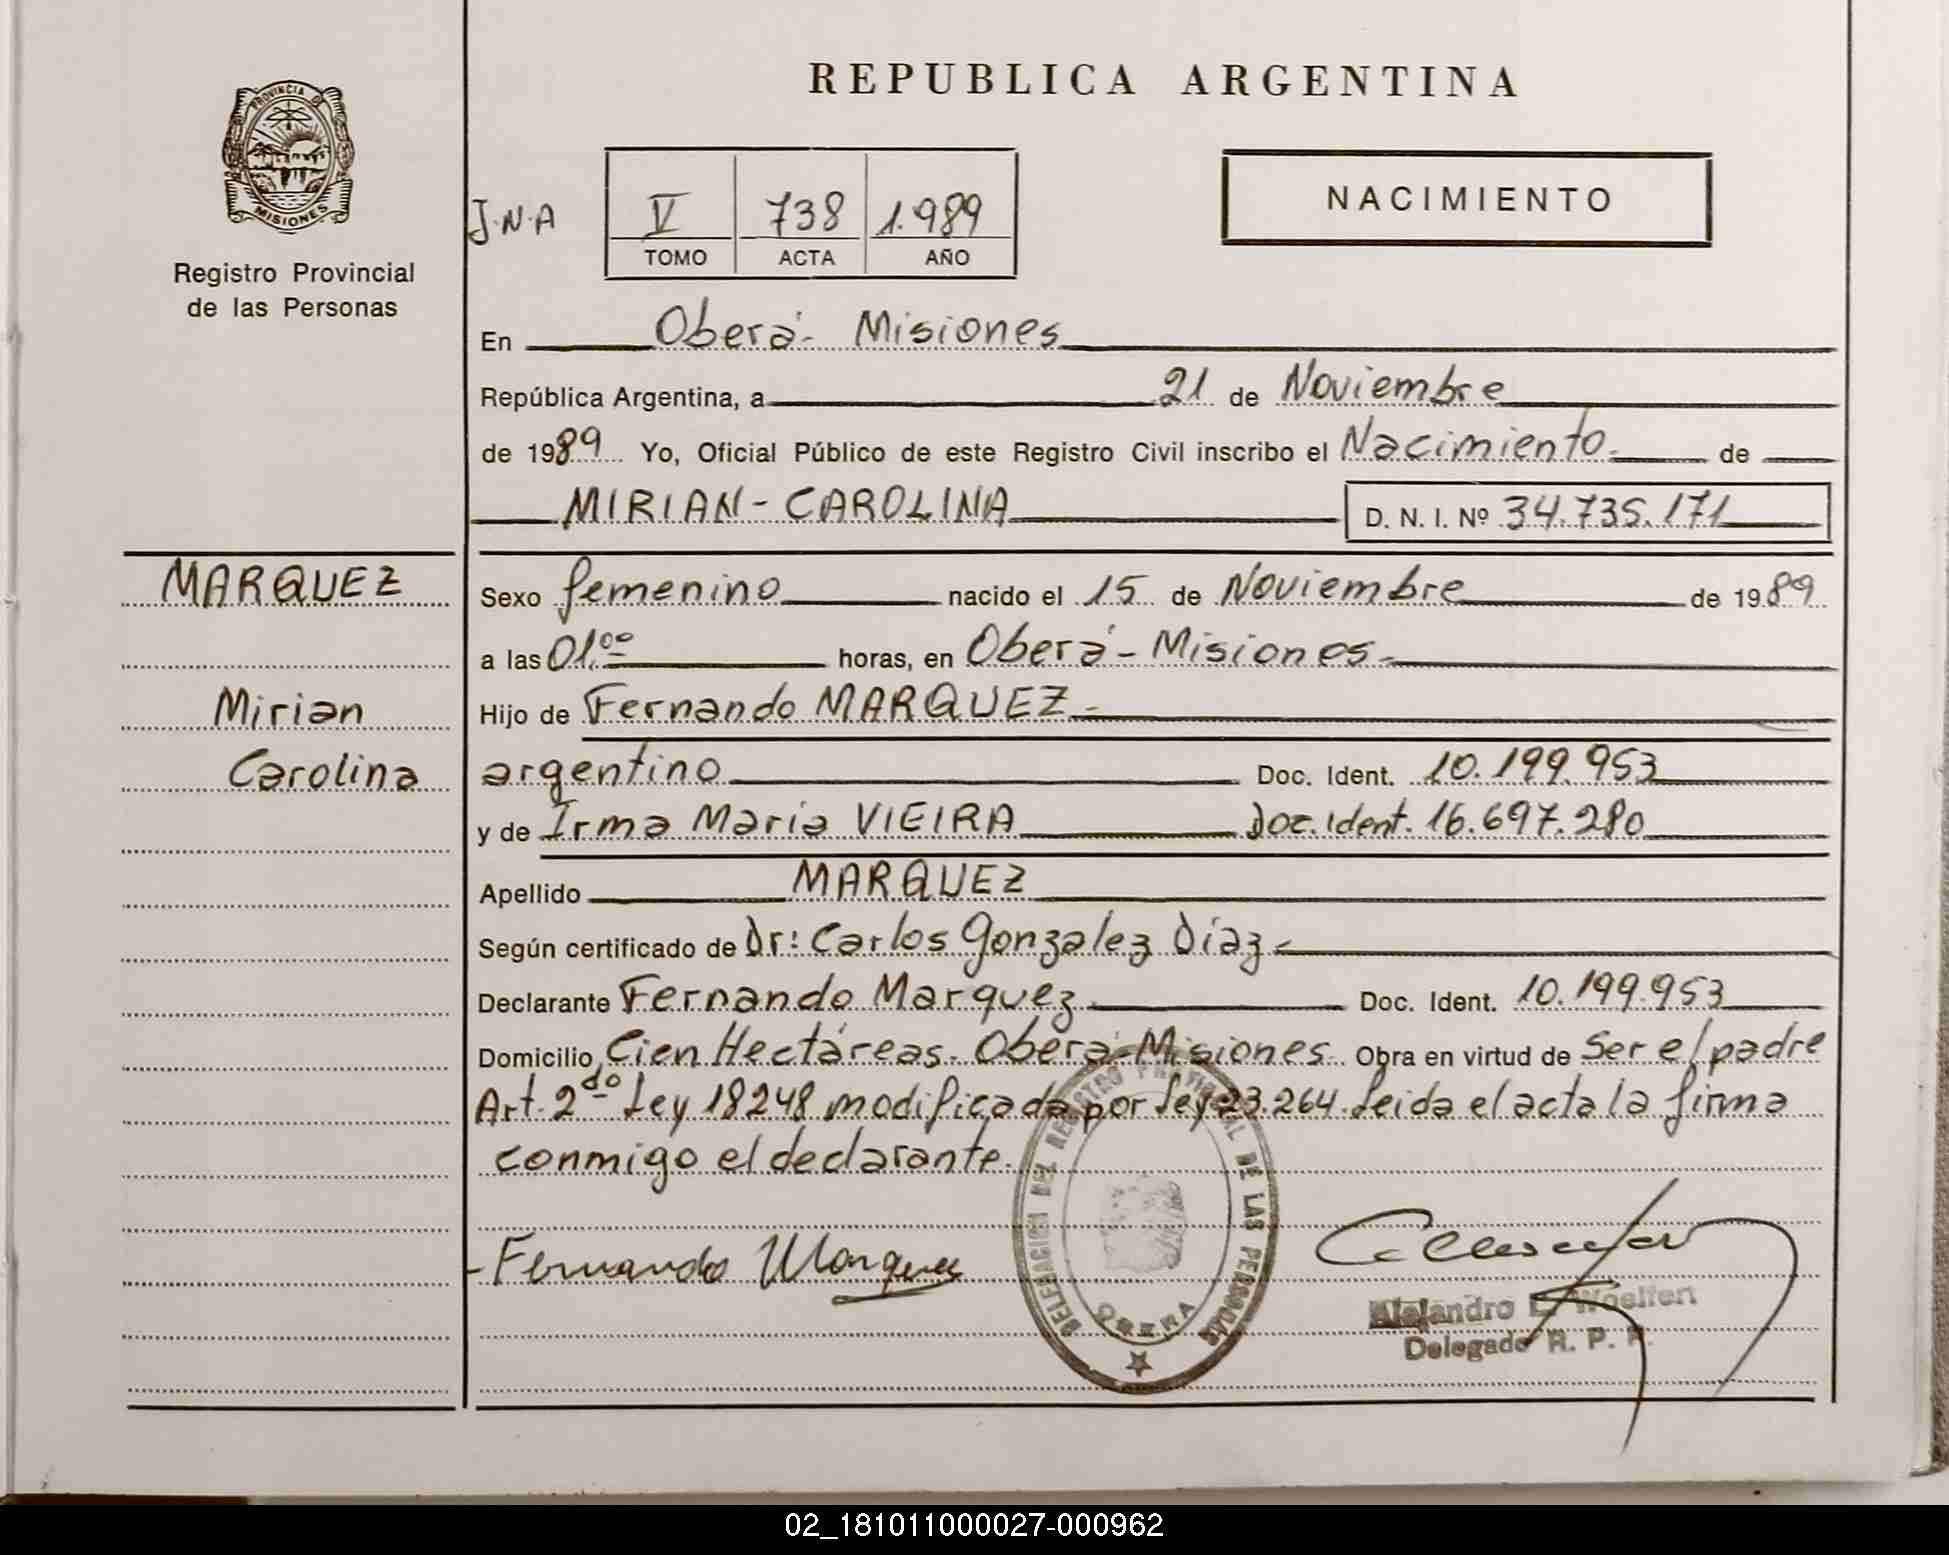 REPUBLICA ARGENTINA
PROVINCIA DE
MISIONES
Registro Provincial
de las Personas
J.N.A
V 738 1.989
TOMO ACTA AÑO
NACIMIENTO
En Oberá - Misiones
República Argentina, a 21 de Noviembre
de 1989 Yo, Oficial Público de este Registro Civil inscribo el Nacimiento de
MIRIAN - CAROLINA D. N. I. Nº 34.735.171
MARQUEZ
Mirian
Carolina
Sexo femenino nacido el 15 de Noviembre de 1989
a las 01.00 horas, en Oberá - Misiones -
Hijo de Fernando MARQUEZ -
argentino Doc. Ident. 10.199.953
y de Irma Maria VIEIRA Doc. Ident. 16.697.280
Apellido MARQUEZ
Según certificado de Dr: Carlos Gonzalez Díaz -
Declarante Fernando Marquez Doc. Ident. 10.199.953
Domicilio Cien Hectáreas. Oberá - Misiones Obra en virtud de Ser el padre
Art. 2do Ley 18248 modificada por Ley 23.264. Leida el acta la firma
conmigo el declarante.
DELEGACION DEL REGISTRO PROVINCIAL DE LAS PERSONAS
OBERA
Fernando Marquez
Alejandro E. Woelfert
Delegado R. P. P.
02_181011000027-000962